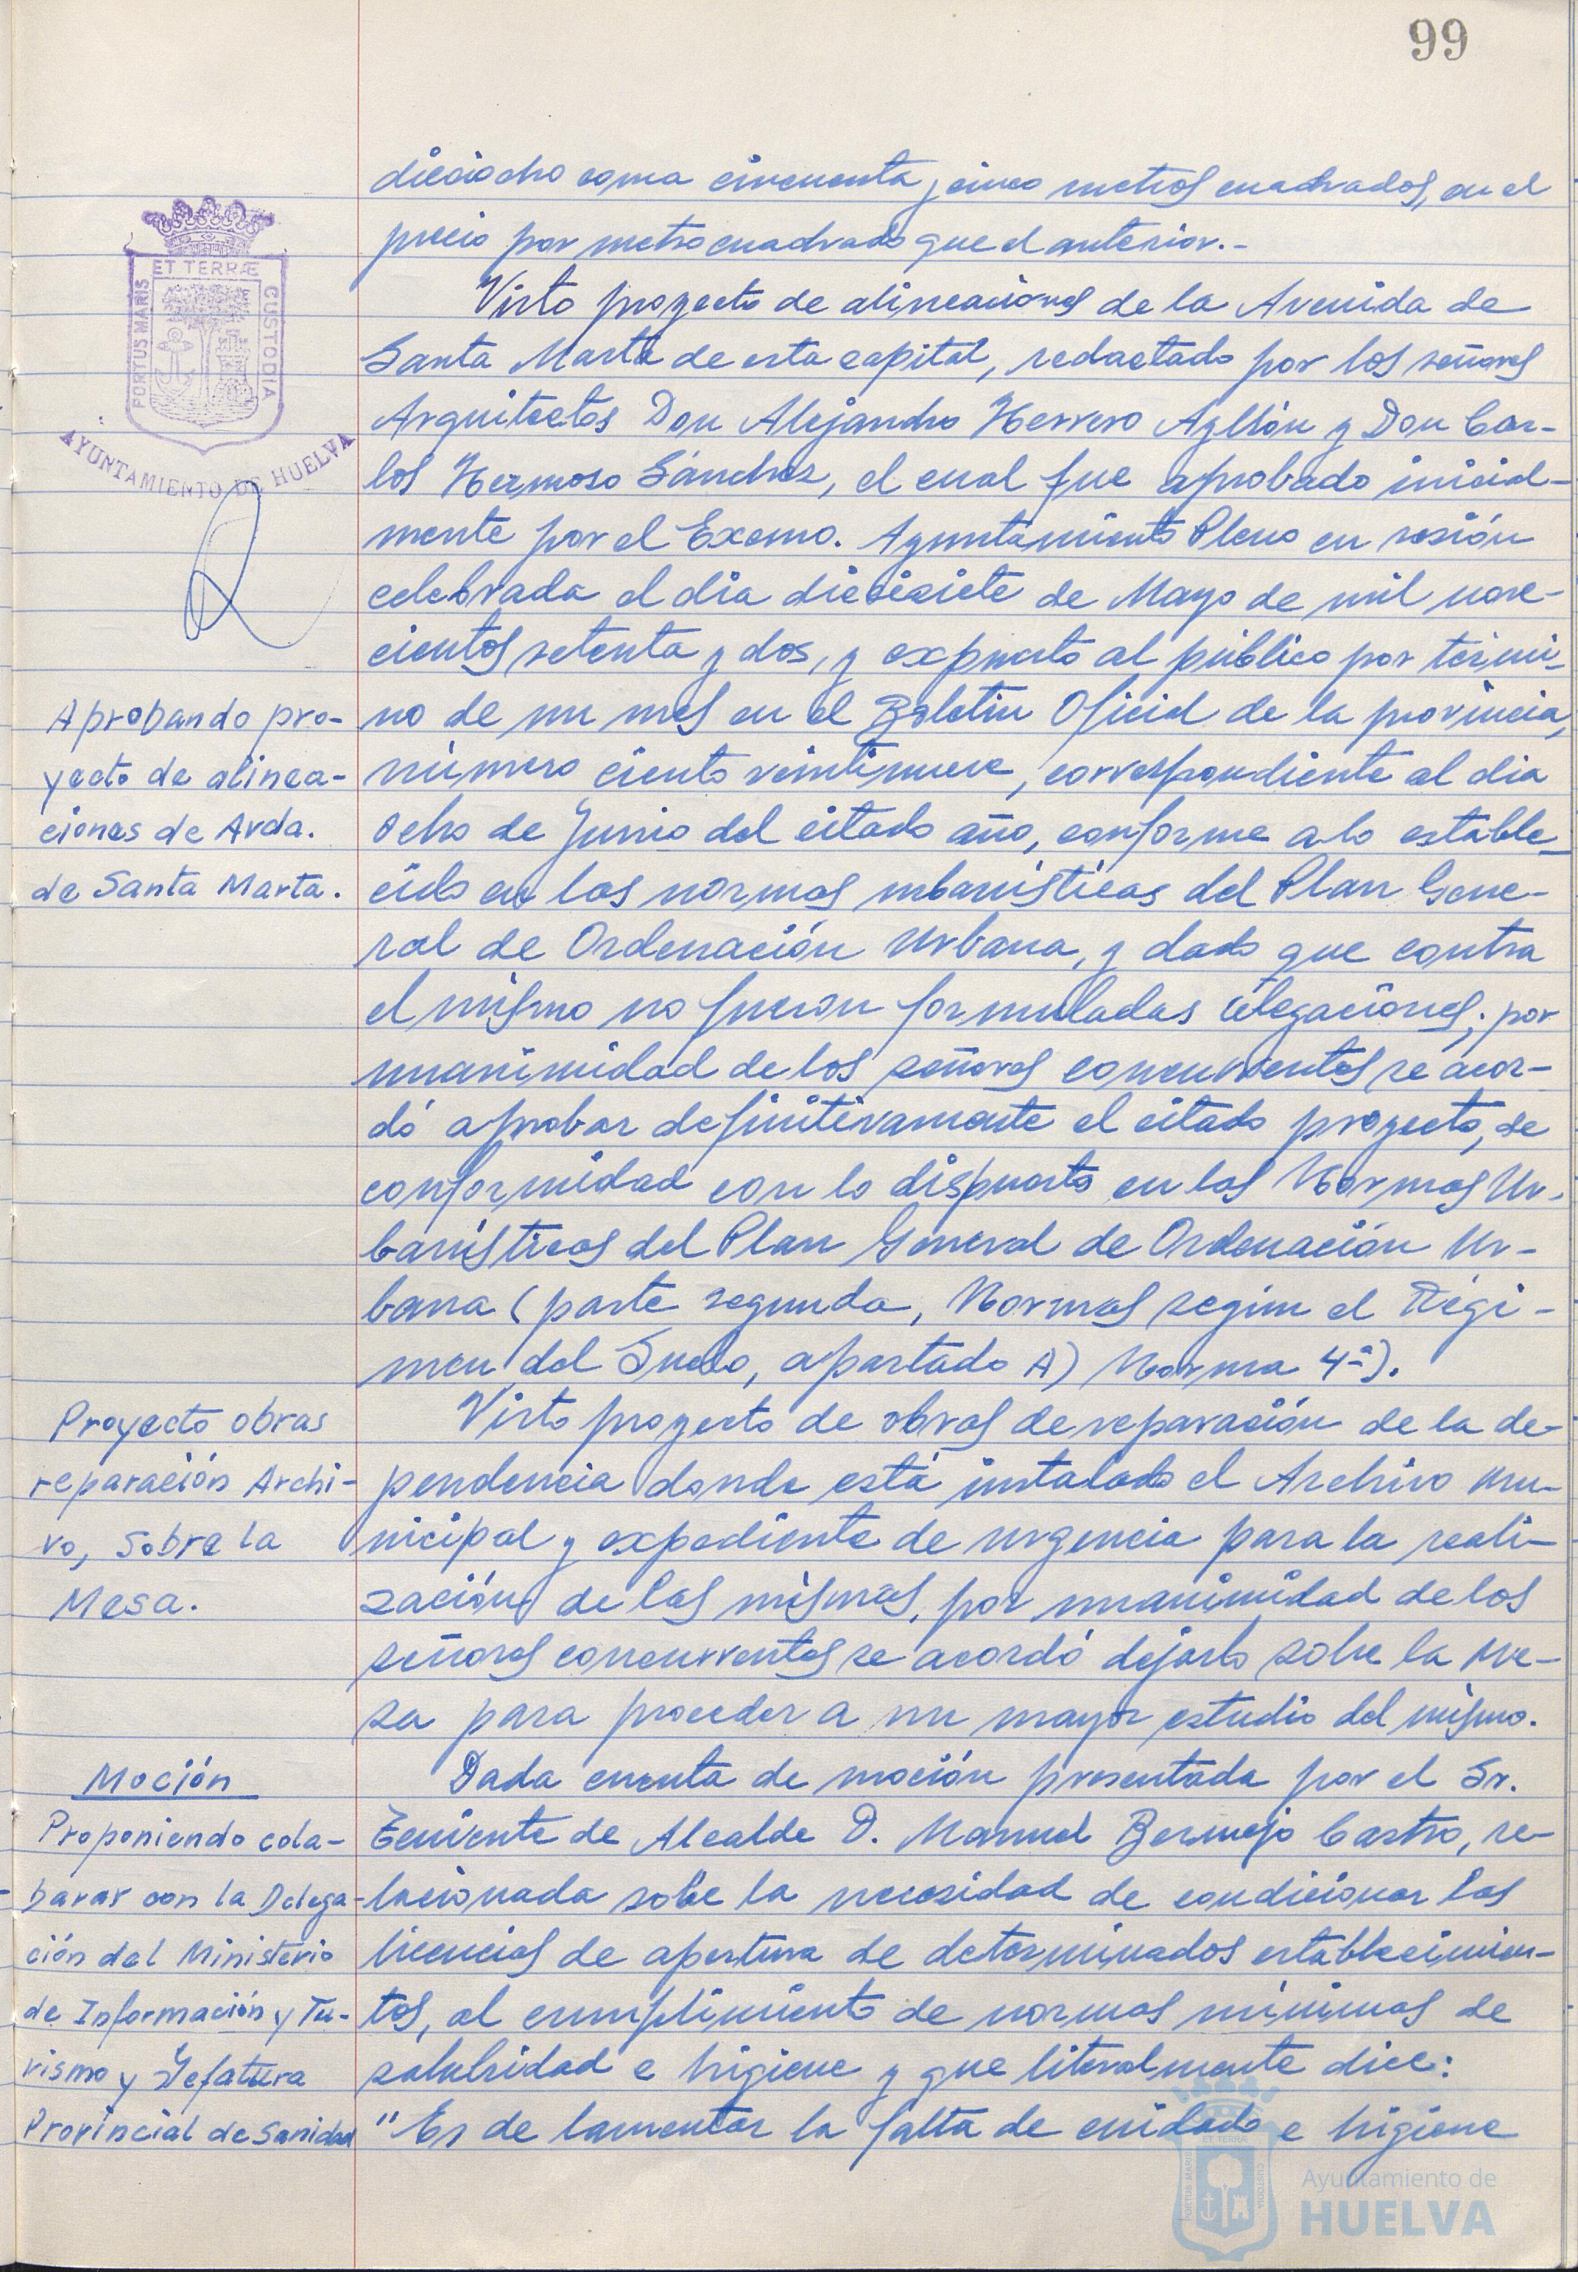 99
dieciocho coma cincuenta y cinco metros cuadrados, en el
precio por metro cuadrado que el anterior.-
ET TERRÆ
PORTUS MARIS
CUSTODIA
AYUNTAMIENTO DE HUELVA
Visto proyecto de alineaciones de la Avenida de
Santa Marta de esta capital, redactado por los señores
Arquitectos Don Alejandro Herrero Ayllón y Don Car-
los Hermoso Sánchez, el cual fue aprobado inicial-
mente por el Excmo. Ayuntamiento Pleno en sesión
celebrada el dia diecisiete de Mayo de mil nove-
cientos setenta y dos, y expuesto al público por térmi-
Aprobando pro-
yecto de alinea-
ciones de Avda.
de Santa Marta.
no de un mes en el Boletin Oficial de la provincia,
número ciento veintinueve, correspondiente al dia
ocho de Junio del citado año, conforme a lo estable-
cido en las normas urbanísticas del Plan Gene-
ral de Ordenación Urbana, y dado que contra
el mismo no fueron formuladas alegaciones; por
unanimidad de los señores concurrentes se acor-
dó aprobar definitivamente el citado proyecto, de
conformidad con lo dispuesto en las Normas Ur-
banísticas del Plan General de Ordenación Ur-
bana (parte segunda, Normas según el Régi-
men del Suelo, apartado A) Norma 4ª).
Proyecto obras
reparación Archi-
vo, sobre la
Mesa.
Visto proyecto de obras de reparación de la de-
pendencia donde está instalado el Archivo Mu-
nicipal y expediente de urgencia para la reali-
zación de las mismas, por unanimidad de los
señores concurrentes se acordó dejarlo sobre la Me-
sa para proceder a un mayor estudio del mismo.
Moción
Proponiendo cola-
barar con la Delega-
ción del Ministerio
de Información y Tu-
rismo y Jefatura
Provincial de Sanidad
Dada cuenta de moción presentada por el Sr.
Teniente de Alcalde D. Manuel Bermejo Castro, re-
lacionada sobre la necesidad de condicionar las
licencias de apertura de determinados establecimien-
tos, al cumplimiento de normas mínimas de
salubridad e higiene y que literalmente dice:
"Es de lamentar la falta de cuidado e higiene
ET TERRÆ
PORTUS MARIS
CUSTODIA
Ayuntamiento de
HUELVA